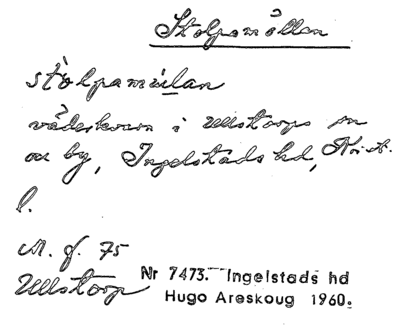 Stolpamöllan
stòlpamöilan
väderkvarn i Ullstorps sn
ou by, Ingelstads hd, Krist.
l.
M. f. 75
Ullstorp
Nr 7473. Ingelstads hd
Hugo Areskoug 1960.